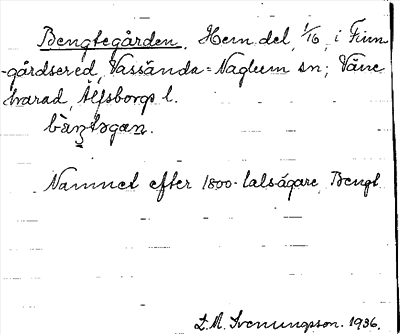 Bengtegården, Hem.del, 1/16, i Finn
-gårdsered, Vassända-Naglum sn; Väne
harad, Älfsborgs l.
bæŋtəgan.
Namnet efter 1800-talsägare, Bengt
L.M. Svenungsson. 1936.